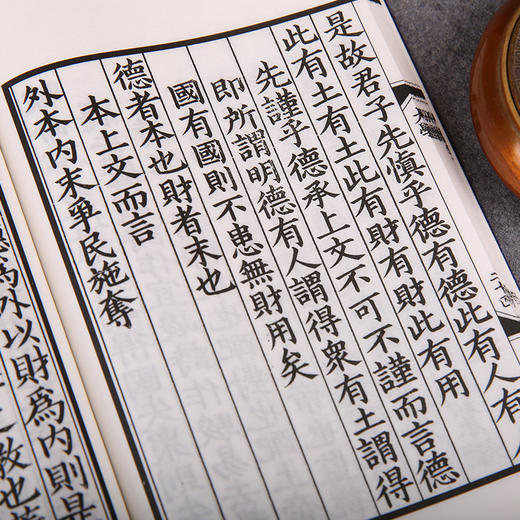 大學
是故君子先慎乎德有德此有人有
此有土有土此有財有財此有用
先謹乎德承上文不可不謹而言德
即所謂明德有人謂得衆有土謂得
國有國則不患無財用矣
德者本也財者末也
本上文而言
外本內末爭民施奪
爲外以財爲內則是
教也